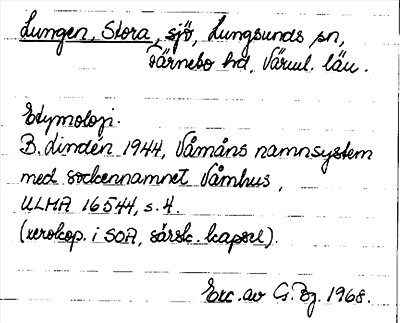 Lungen, Stora, sjö, Lungsunds sn,
Färnebo hd, Värml. län.
Etymologi.
B. Lindén 1944, Våmåns namnsystem
med sockennamnet Våmhus,
ULMA 16544, s. 4.
(xerokop. i SOA, särsk. kapsel).
Exc. av G. Bg. 1968.